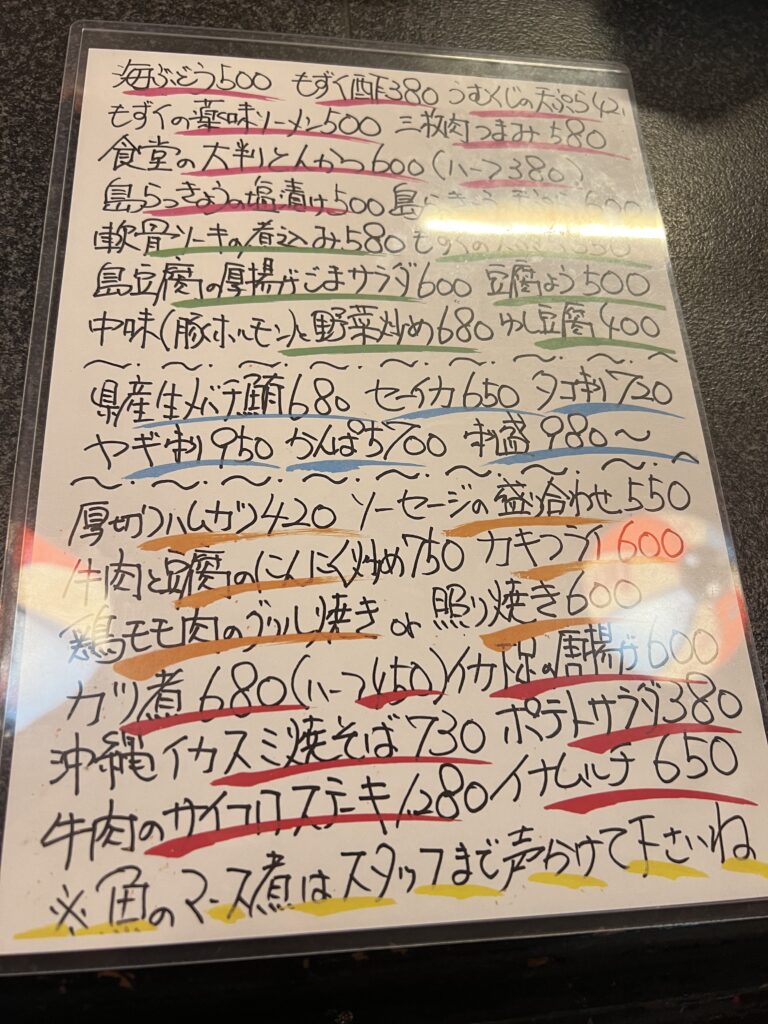 海ぶどう500 もずく酢380 うむくじの天ぷら42
もずくの薬味ソーメン500 三枚肉つまみ580
食堂の大判とんかつ600(ハーフ380)
島らっきょうの塩漬け500 島らっきょう 600
軟骨ソーキの煮込み580 もずくの 550
島豆腐の厚揚げごまサラダ600 豆腐よう500
中味(豚ホルモン)と野菜炒め680 ゆし豆腐400
県産生メバチ鮪680 セーイカ650 タコ刺720
ヤギ刺950 かんぱち700 刺盛980〜
厚切りハムカツ420 ソーセージの盛り合わせ550
牛肉と豆腐のにんにく炒め750 カキフライ600
鶏モモ肉のグリル焼き or 照り焼き600
カツ煮680(ハーフ450)イカ下足の唐揚げ600
沖縄イカスミ焼そば730 ポテトサラダ380
牛肉のサイコロステーキ1280 イナムルチ650
※魚のマース煮はスタッフまで声かけて下さいね